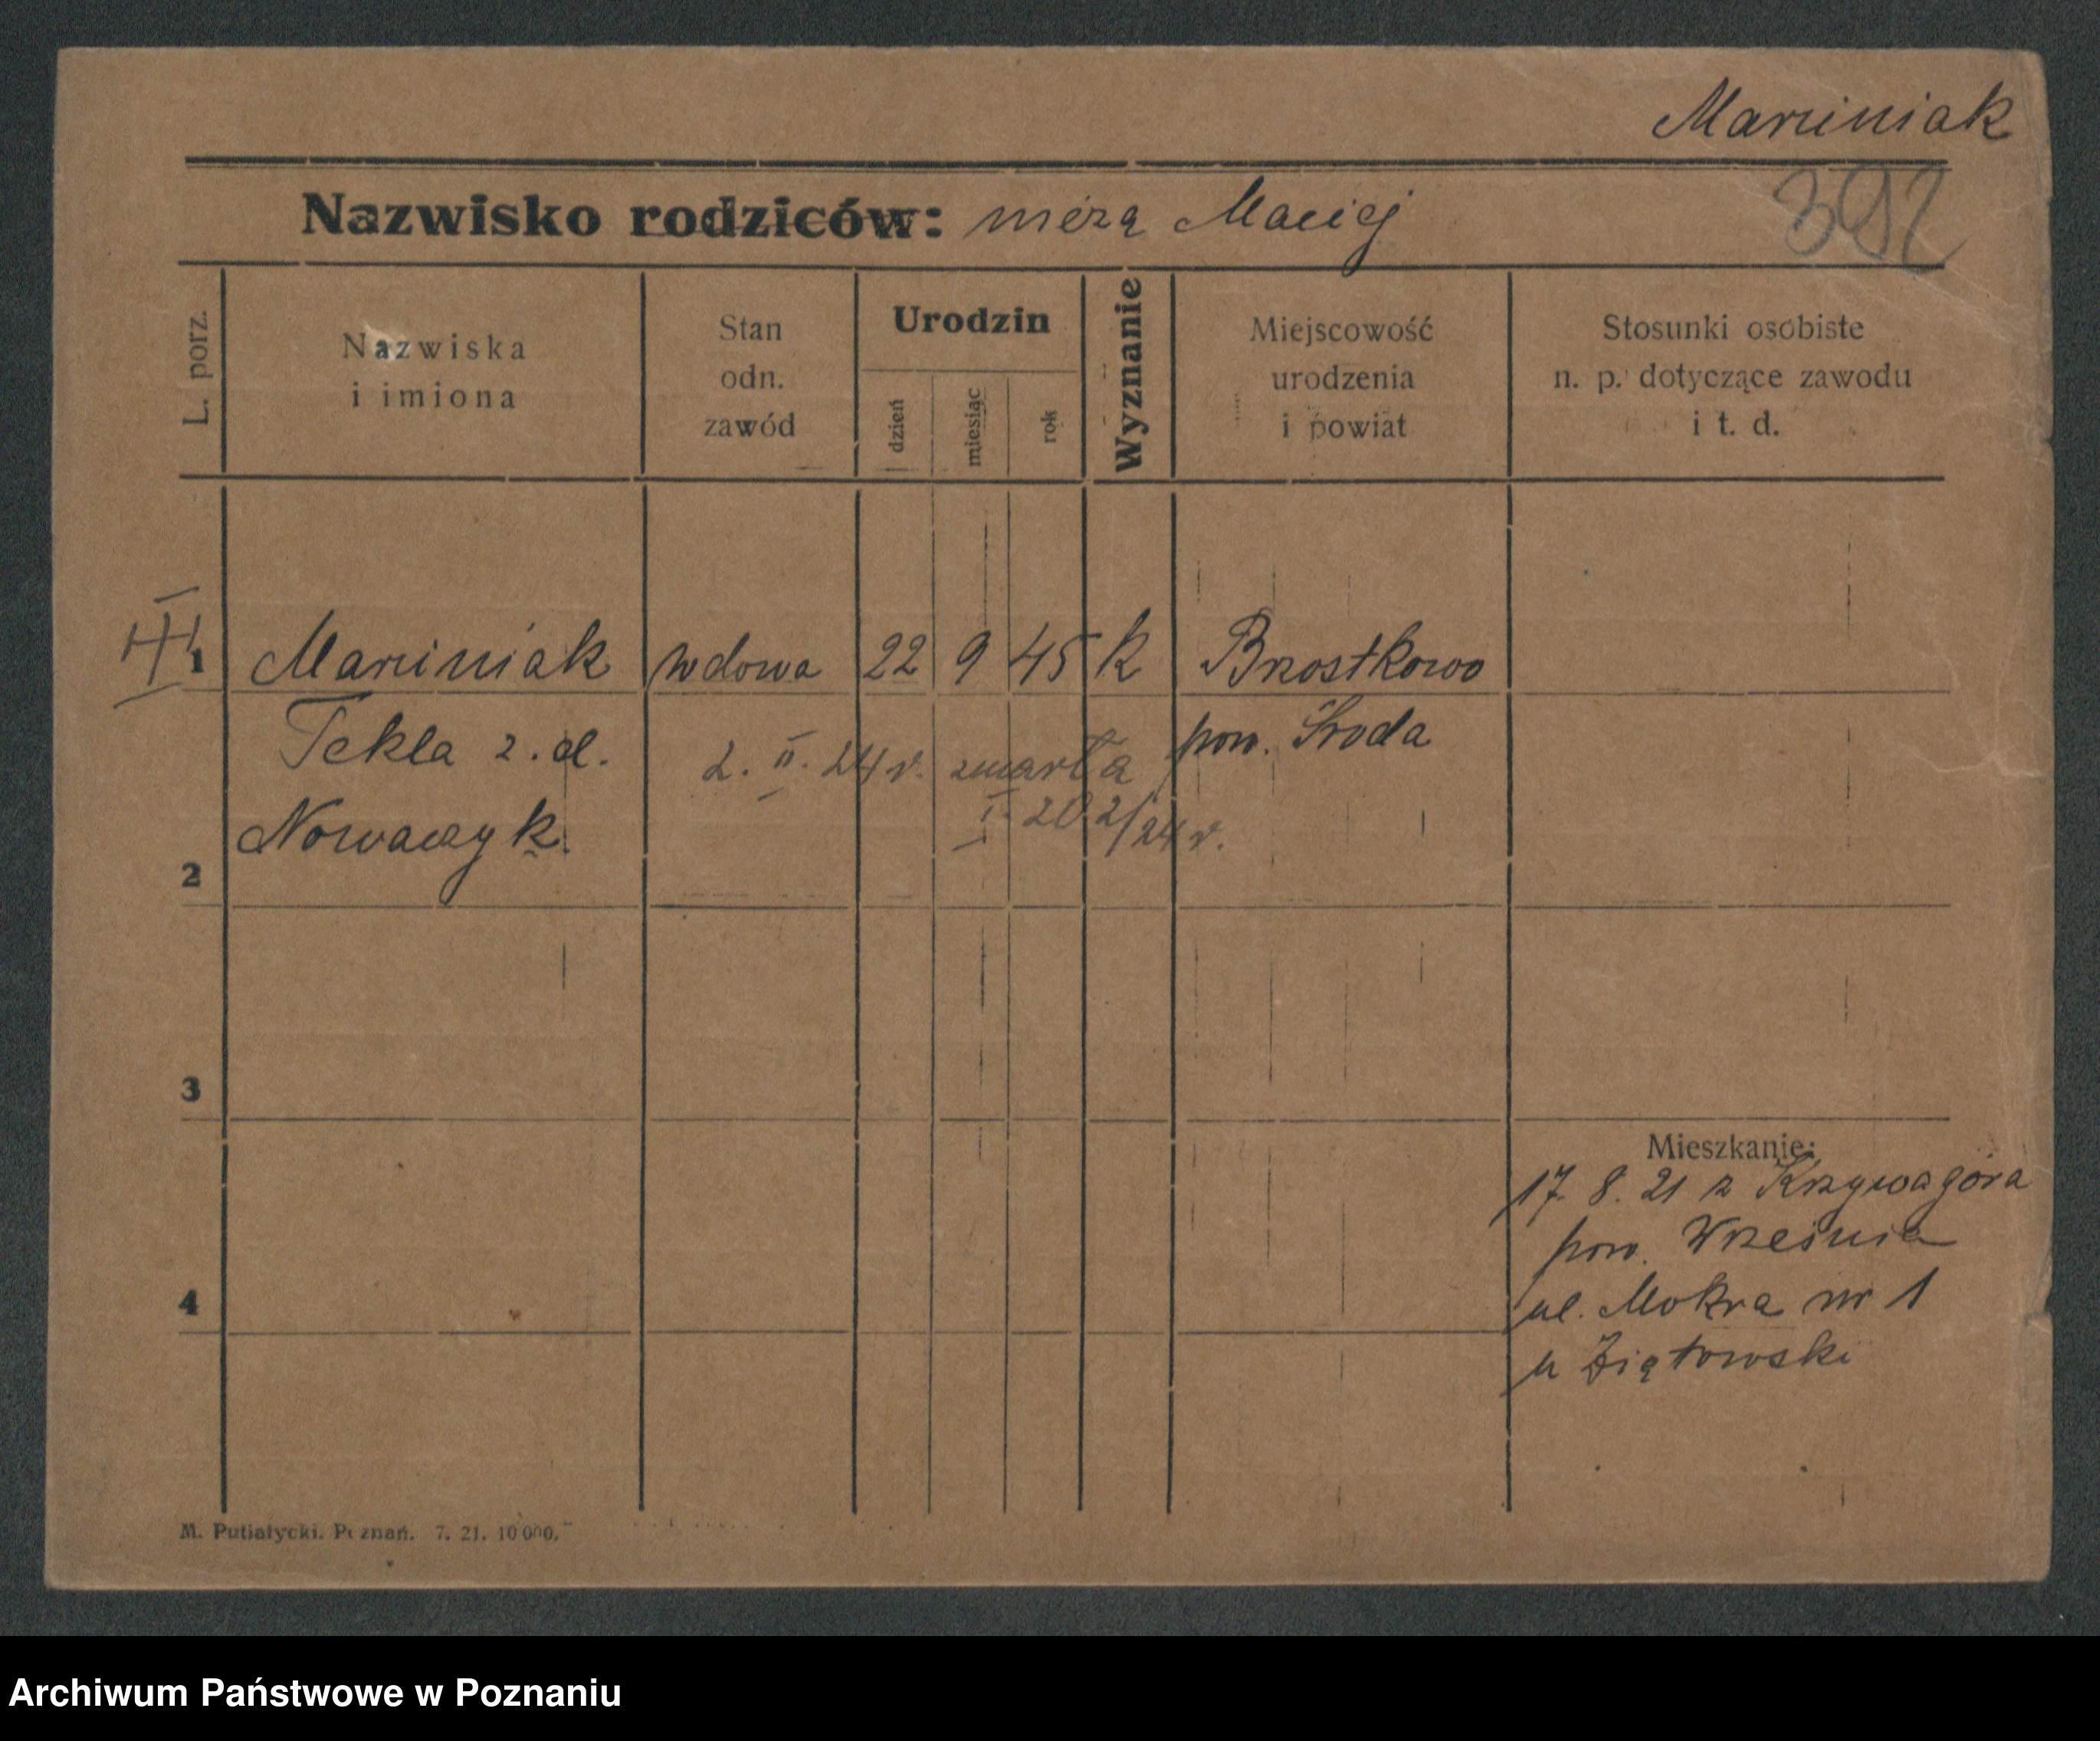 Marciniak
392
Nazwisko rodziców: męża Maciej
L. porz.
Nazwiska
i imiona
Stan
odn.
zawód
Urodzin
dzień
miesiąc
rok
Wyznanie
Miejscowość
urodzenia
i powiat
Stosunki osobiste
n. p. dotyczące zawodu
i t. d.
1 Marciniak wdowa 22 9 45 k Brzostkowo
Tekla z. d. pow. Środa
2. II. 24 r. zmarła
I. 20 2/24 r.
Nowaczyk.
2
3
4
Mieszkanie:
17. 8. 21 z Krzywagóra
pow. Września
ul. Mokra nr 1
u Ziętowski
M. Putiatycki. Poznań. 7. 21. 10 000.
Archiwum Państwowe w Poznaniu